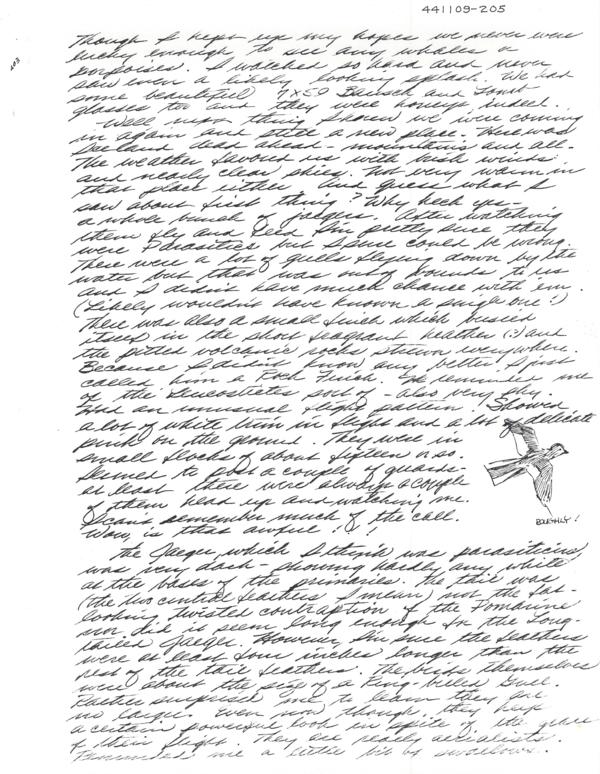 441109-205
Though I kept up my hopes we never were
lucky enough to see any whales or
porpoises. I watched so hard and never
saw even a likely looking splash. We had
some beautiful 7x50 Bausch and Lomb
glasses too and they were honeys indeed.
Well next thing I knew we were coming
in again and still a new place. There was
Iceland dead ahead - mountains and all.
The weather favoured us with brisk winds
and nearly clear skies. Not very warm in
that place either. And guess what I
saw about first thing? Why heck yes -
a whole bunch of jaegers. After watching
them fly and feed I'm pretty sure they
were Parasitics but I sure could be wrong.
There were a lot of gulls flying down by the
water but that was out of bounds to us
and I didn't have much chance with 'em.
(Likely wouldn't have known a single one!)
There was also a small finch which busied
itself in the short fragrant heather (?) and
the pitted volcanic rocks strewn everywhere.
Because I didn't know any better I just
called him a Rock Finch. He reminded me
of the Leucostictes sort of - also very shy.
Had an unusual flight pattern. Showed
a lot of white trim in flight and a lot of delicate
pink on the ground. They were in
small flocks of about fifteen or so.
Seemed to post a couple of guards -
at least there were always a couple
of them head up and watching me.
I can't remember much of the call.
Wow, is that awful! !
ROUGHLY!
The Jaeger, which I think was parasiticus,
was very dark - showing hardly any white
at the bases of the primaries. The tail was
(the two central feathers I mean) not the fat-
looking twisted contraption of the Pomarine
nor did it seem long enough for the Long-
tailed Jaeger. However, I'm sure the feathers
were at least four inches longer than the
rest of the tail feathers. The birds themselves
were about the size of a Ring-billed Gull.
Rather surprised me to learn they are
no larger. Even now though, they keep
a certain powerful look in spite of the grace
of their flight. They are really aerialists.
Reminded me a little bit of swallows.